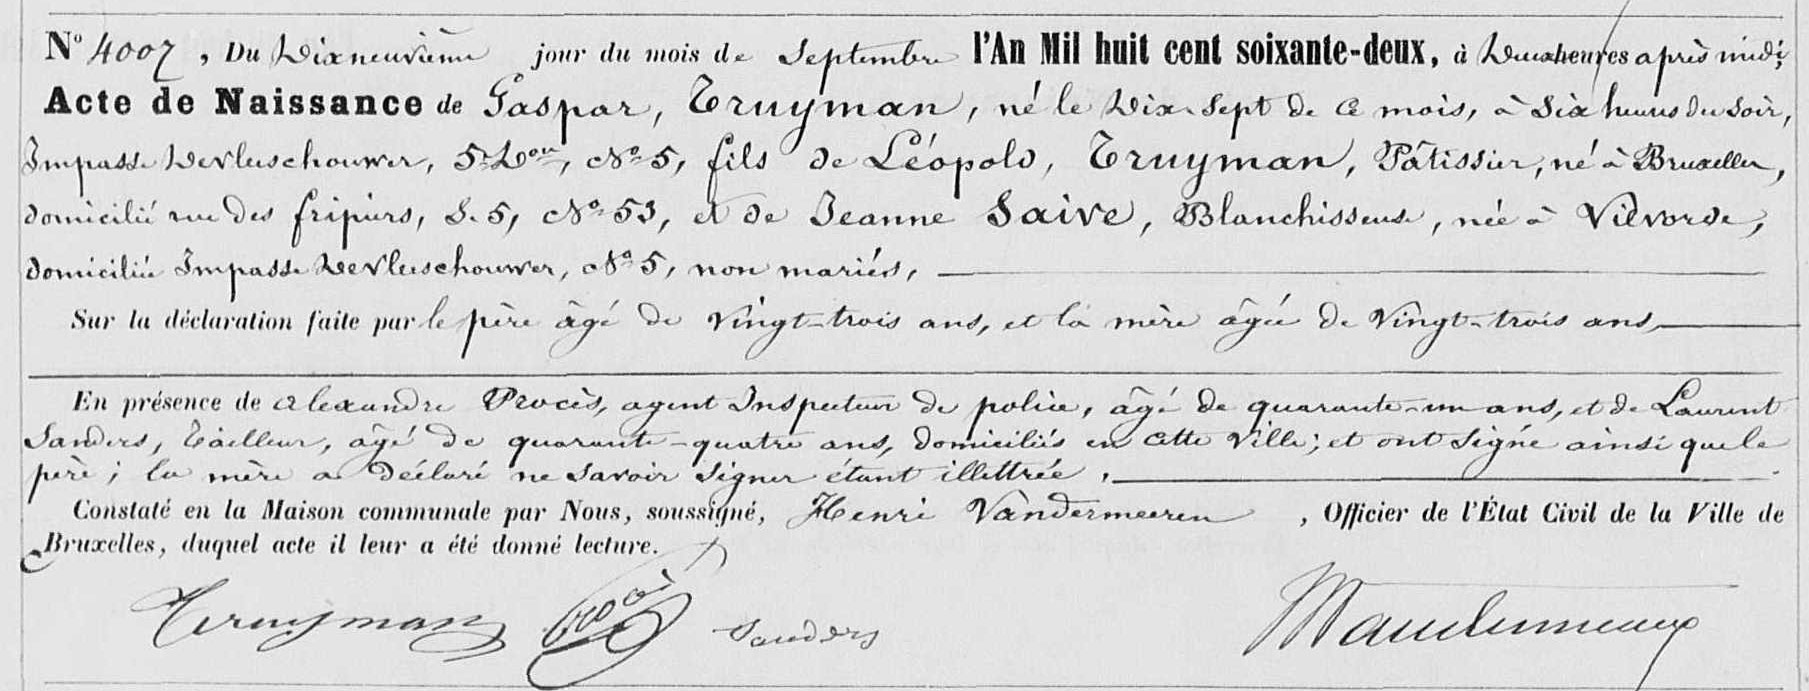 N° 4007, Du Dixneuvième jour du mois de Septembre l'An Mil huit cent soixante-deux, à Deux heures après midi;
Acte de Naissance de Gaspar, Truyman, né le Dix-sept de ce mois, à Six heures du soir,
Impasse Devleeschouwer, 5e Don, N° 5, fils de Léopold, Truyman, Pâtissier, né à Bruxelles,
domicilié rue des fripiers, S. 5, N° 53, et de Jeanne Saive, Blanchisseuse, née à Vilvorde,
domiciliée Impasse Devleeschouwer, N° 5, non mariés,
Sur la déclaration faite par le père âgé de Vingt-trois ans, et la mère âgée de Vingt-trois ans
En présence de Alexandre Procès, agent Inspecteur de police, âgé de quarante-un ans, et de Laurent
Sanders, Tailleur, âgé de quarante-quatre ans, domiciliés en cette Ville; et ont signé ainsi que le
père; la mère a déclaré ne savoir signer étant illettrée.
Constaté en la Maison communale par Nous, soussigné, Henri Vandermeeren, Officier de l'État Civil de la Ville de
Bruxelles, duquel acte il leur a été donné lecture.
Truyman Procès Sanders Vandermeeren